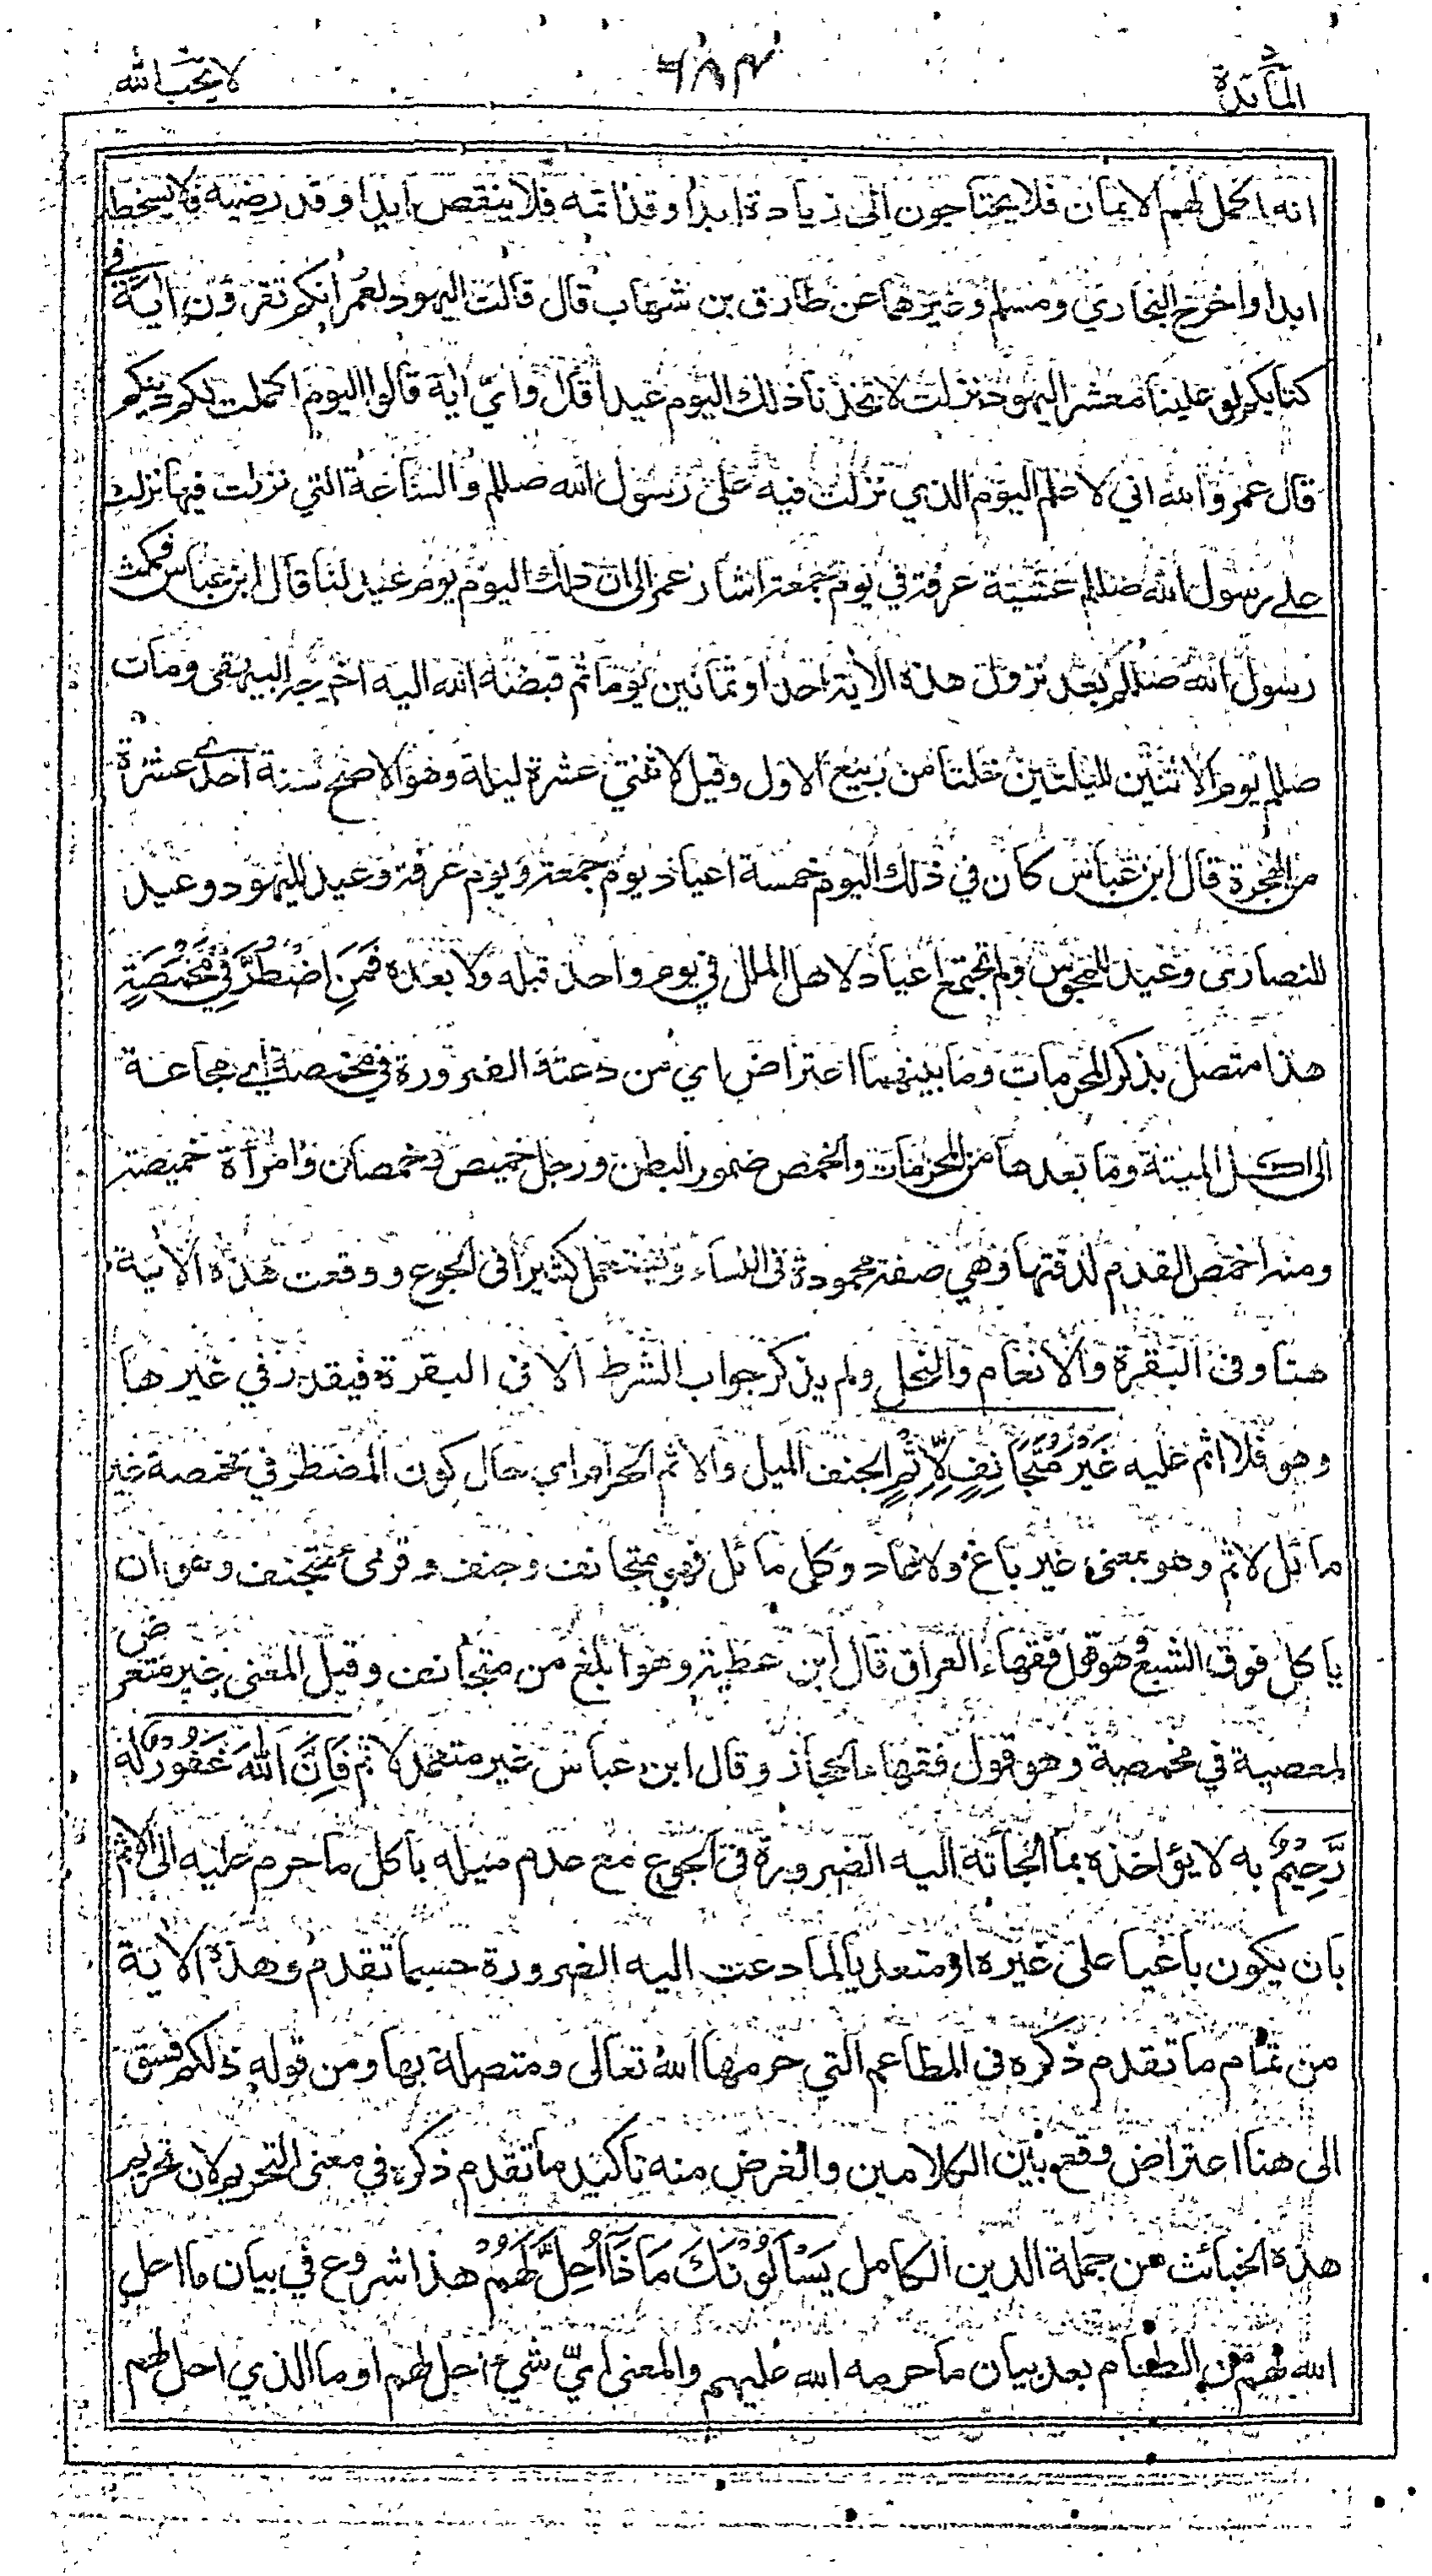 المآئدة
٦٨٣
لا يحب الله
انه اكمل لهم الايمان فلا يحتاجون الى زيادة ابدا وقد اتمه فلا ينقص ابدا وقد رضيه فلا يسخطه
ابدا واخرج البخاري ومسلم وغيرهما عن طارق بن شهاب قال قالت اليهود لعمر انكم تقرؤن اية في
كتابكم لو علينا معشر اليهود نزلت لاتخذنا ذلك اليوم عيدا قال واي اية قالوا اليوم اكملت لكم دينكم
قال عمر والله اني لاعلم اليوم الذي نزلت فيه على رسول الله صللم والساعة التي نزلت فيها نزلت
على رسول الله صللم عشية عرفة في يوم جمعة اشار عمر الى ان ذلك اليوم يوم عيد لنا قال ابن عباس فمكث
رسول الله صللم بعد نزول هذه الاية احدا وثمانين يوما ثم قبضه الله اليه اخرجه البيهقي ومات
صللم يوم الاثنين لليلتين خلتا من ربيع الاول وقيل لاثنتي عشرة ليلة وهو الاصح سنة احدى عشرة
من الهجرة قال ابن عباس كان في ذلك اليوم خمسة اعياد يوم جمعة ويوم عرفة وعيد لليهود وعيد
للنصارى وعيد للمجوس ولم تجتمع اعياد لاهل الملل في يوم واحد قبله ولا بعده فَمَنِ اضْطُرَّ فِي مَخْمَصَةٍ
هذا متصل بذكر المحرمات وما بينهما اعتراض اي من دعته الضرورة في مخمصة اي مجاعة
الى اكل الميتة وما بعدها من المحرمات والخمص ضمور البطن ورجل خميص وخمصان وامرأة خميصة
ومنه اخمص القدم لدقتها وهي صفة محمودة في النساء ويستعمل كثيرا في الجوع ووقعت هذه الاية
هنا وفي البقرة والانعام والنحل ولم يذكر جواب الشرط الا في البقرة فيقدر في غيرها
وهو فلا اثم عليه غَيْرَ مُتَجَانِفٍ لِّاِثْمٍ الجنف الميل والاثم الحرام اي حال كون المضطر في مخمصة غير
مائل لاثم وهو بمعنى غير باغ ولا عاد وكل مائل فهو متجانف وجنف وقرئ متجنف وهو ان
ياكل فوق الشبع وهو قول فقهاء العراق قال ابن عطية وهو ابلغ من متجانف وقيل المعنى غير متعرض
لمعصية في مخمصة وهو قول فقهاء الحجاز وقال ابن عباس غير متعمد لاثم فَاِنَّ اللّٰهَ غَفُوْرٌ له
رَّحِيْمٌ به لا يؤاخذه بما الجأته اليه الضرورة في الجوع مع عدم ميله باكل ما حرم عليه الى الاثم
بان يكون باغيا على غيره او متعديا لما دعت اليه الضرورة حسبما تقدم وهذه الاية
من تمام ما تقدم ذكره في المطاعم التي حرمها الله تعالى ومتصلة بها ومن قوله ذلكم فسق
الى هنا اعتراض وقع بين الكلامين والغرض منه تاكيد ما تقدم ذكره في معنى التحريم لان تحريم
هذه الخبائث من جملة الدين الكامل يَسْاَلُوْنَكَ مَاذَآ اُحِلَّ لَهُمْ هذا شروع في بيان ما احل
الله لهم من الطعام بعد بيان ما حرمه الله عليهم والمعنى ايّ شيء احل لهم او ما الذي احل لهم